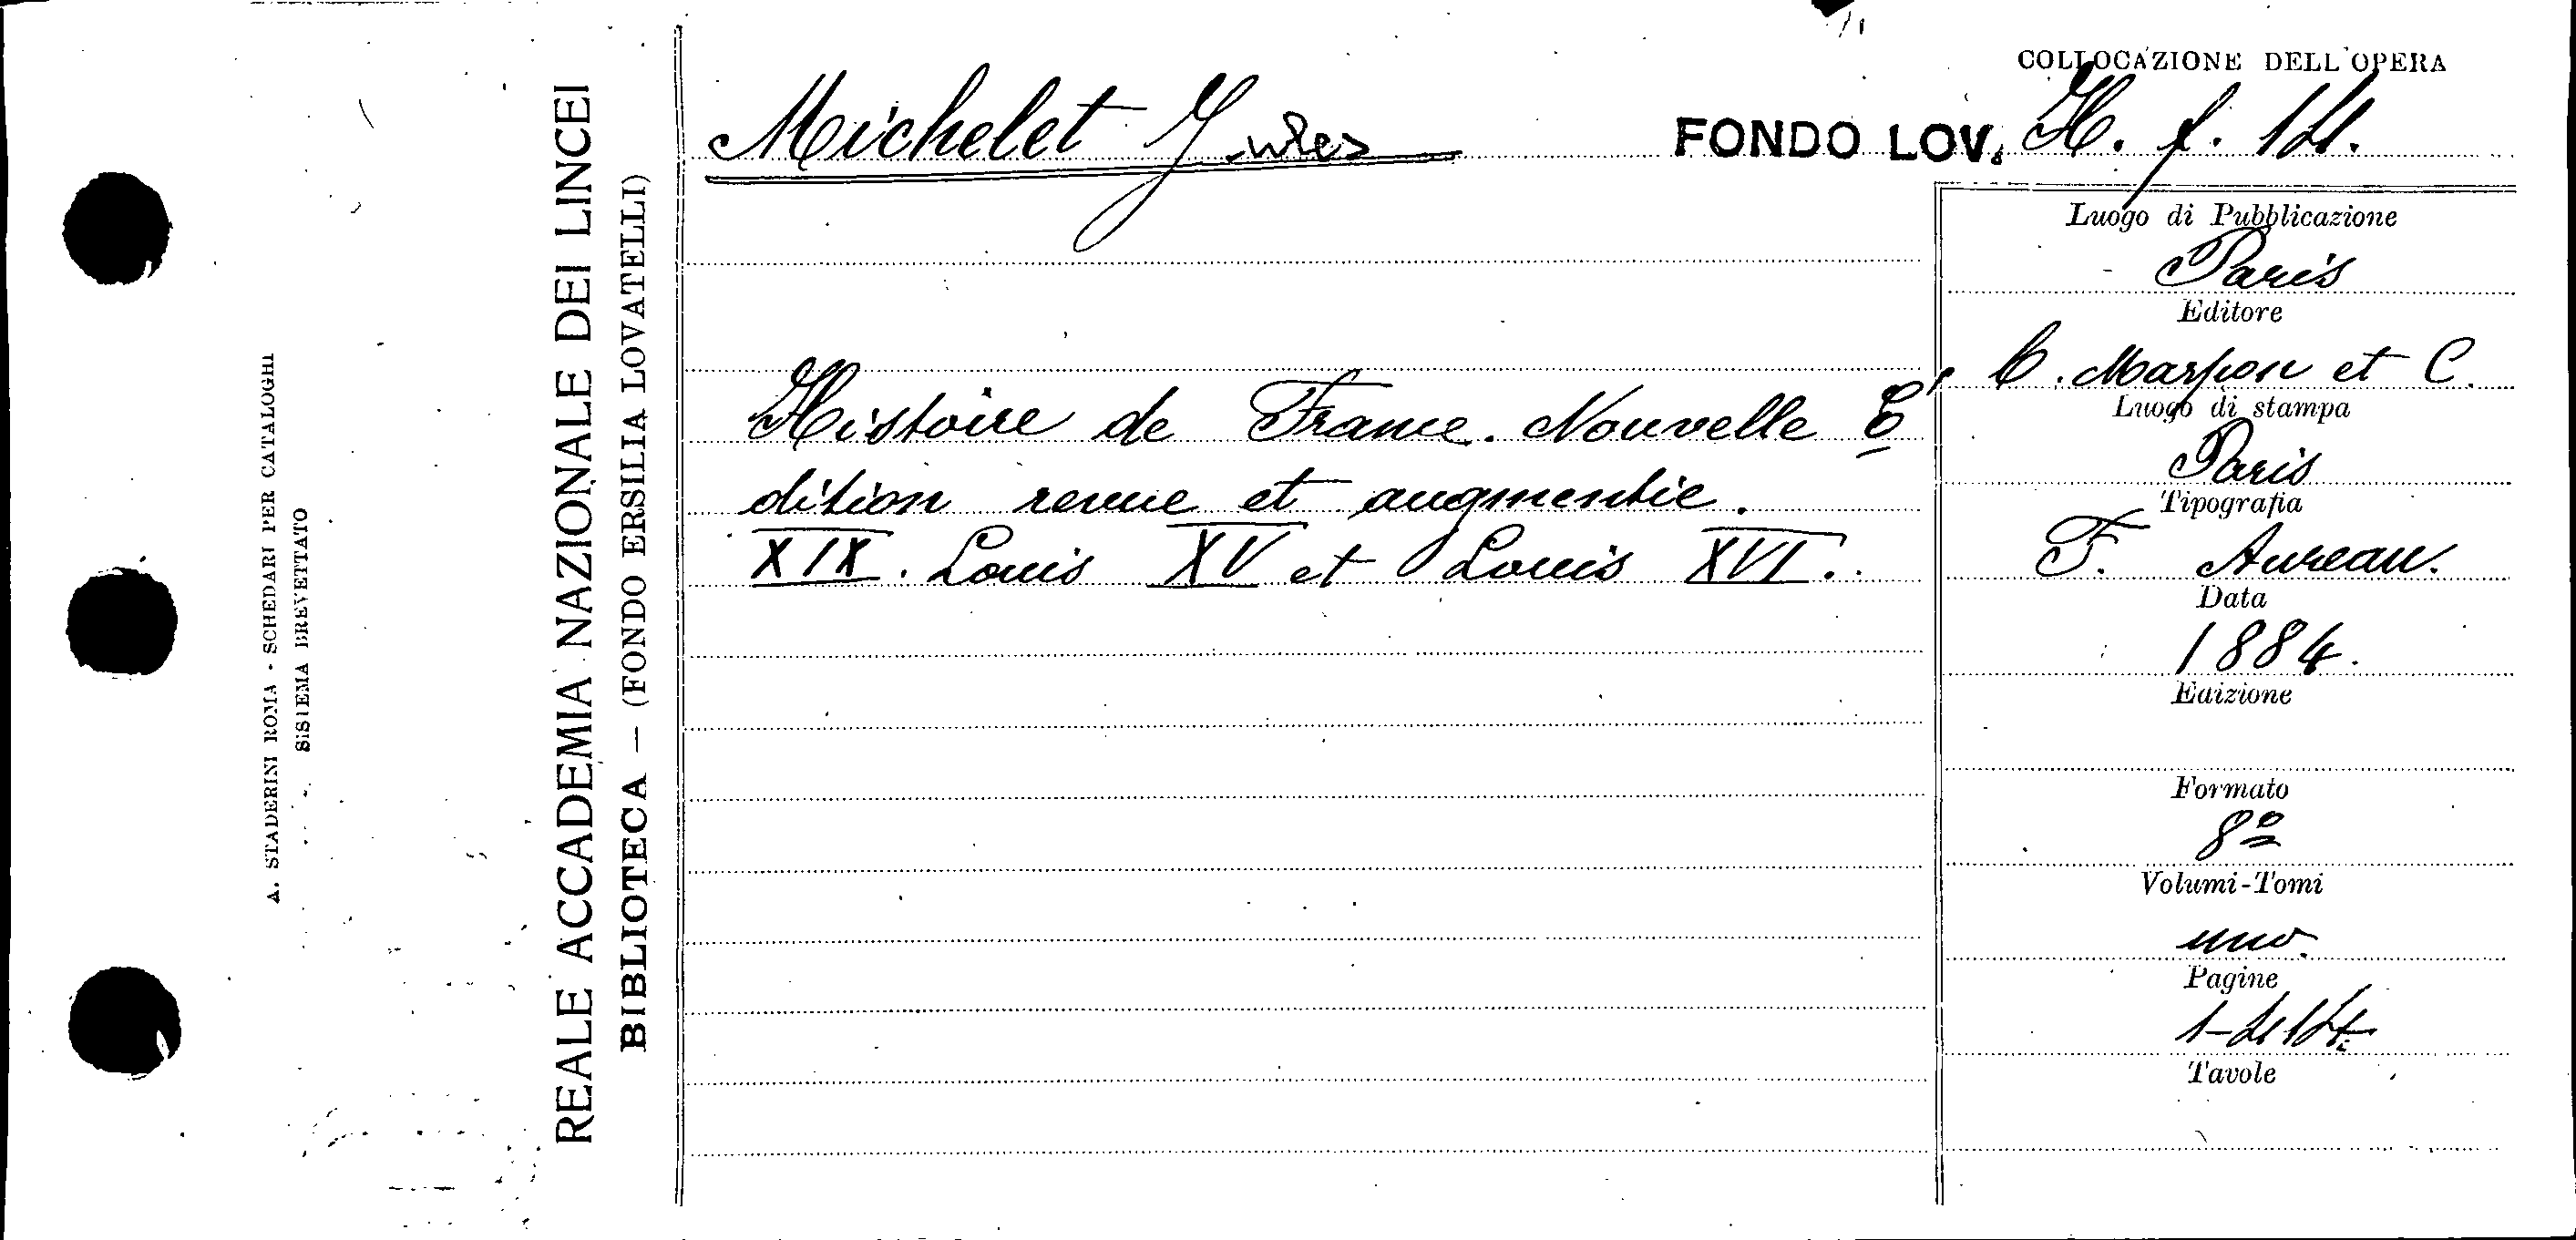 A. STADERINI ROMA - SCHEDARI PER CATALOGHI
SISTEMA BREVETTATO
REALE ACCADEMIA NAZIONALE DEI LINCEI
BIBLIOTECA — (FONDO ERSILIA LOVATELLI)
COLLOCAZIONE DELL'OPERA
Michelet Jules
FONDO LOV. H. f.
Histoire de France. Nouvelle É
dition revue et augmentie.
XIX. Louis XV et Louis XVI.
Luogo di Pubblicazione
Paris
Editore
C. Marpon et C.
Luogo di stampa
Paris
Tipografia
F. Aureau.
Data
1884.
Edizione
Formato
8º
Volumi-Tomi
uno.
Pagine
Tavole